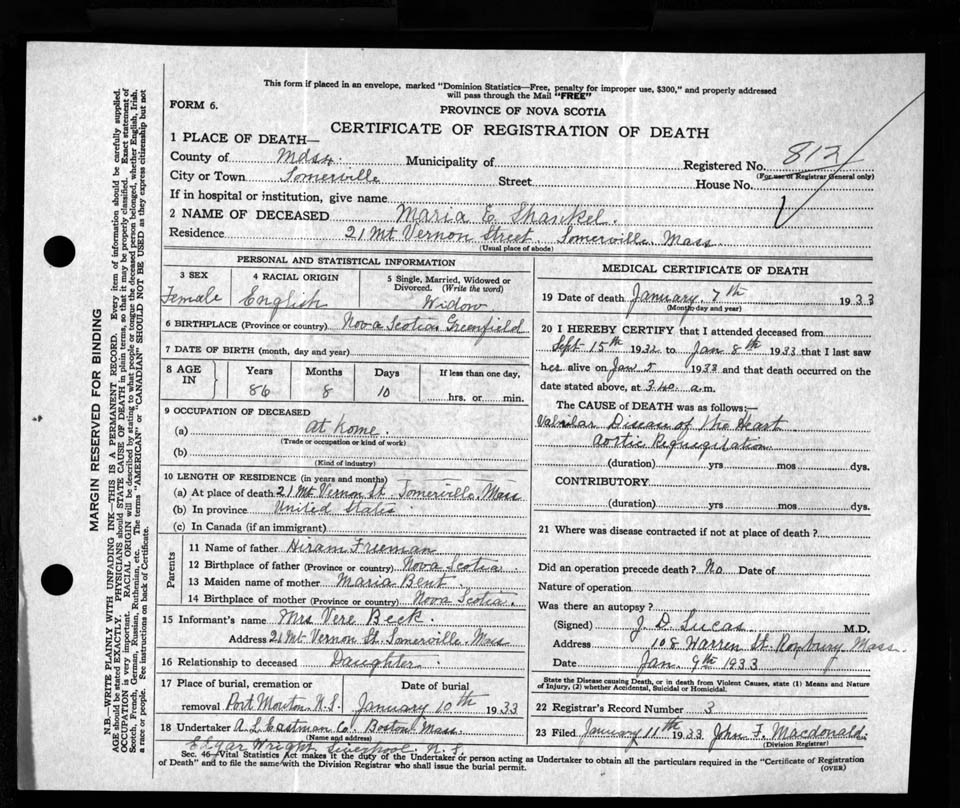 This form if placed in an envelope, marked "Dominion Statistics—Free, penalty for improper use, $300," and properly addressed
will pass through the Mail "FREE"
FORM 6.
PROVINCE OF NOVA SCOTIA
CERTIFICATE OF REGISTRATION OF DEATH
1 PLACE OF DEATH—
County of Mass. Municipality of Registered No. 812
(For use of Registrar General only)
City or Town Somerville Street House No.
If in hospital or institution, give name
2 NAME OF DECEASED Maria E. Shankel.
Residence 21 Mt Vernon Street. Somerville. Mass
(Usual place of abode)
PERSONAL AND STATISTICAL INFORMATION
3 SEX Female
4 RACIAL ORIGIN English
5 Single, Married, Widowed or
Divorced. (Write the word)
Widow
6 BIRTHPLACE (Province or country) Nova Scotia Greenfield
7 DATE OF BIRTH (month, day and year)
8 AGE IN Years Months Days If less than one day,
86 8 10 hrs. or min.
9 OCCUPATION OF DECEASED
(a) at home.
(Trade or occupation or kind of work)
(b)
(Kind of industry)
10 LENGTH OF RESIDENCE (in years and months)
(a) At place of death 21 Mt. Vernon St. Somerville, Mass
(b) In province United States
(c) In Canada (if an immigrant)
Parents
11 Name of father Hiram Freeman
12 Birthplace of father (Province or country) Nova Scotia
13 Maiden name of mother Maria Bent
14 Birthplace of mother (Province or country) Nova Scotia.
15 Informant's name Mrs Vere Beck.
Address 21 Mt Vernon St. Somerville. Mass
16 Relationship to deceased Daughter
17 Place of burial, cremation or Date of burial
removal Port Mouton. N.S. January 10th 1933
18 Undertaker A. L. Eastman Co. Boston Mass.
(Name and address)
Edgar Wright Liverpool. N.S.
MEDICAL CERTIFICATE OF DEATH
19 Date of death January 7th 1933
(Month, day and year)
20 I HEREBY CERTIFY that I attended deceased from
Sept 15th 1932 to Jan 8th 1933 that I last saw
her alive on Jan 5 1933 and that death occurred on the
date stated above, at 3 40 a.m.
The CAUSE of DEATH was as follows:—
Valvular Disease of the Heart
Aortic Regurgitation
(duration) yrs mos dys.
CONTRIBUTORY
(duration) yrs mos dys.
21 Where was disease contracted if not at place of death?
Did an operation precede death? No Date of
Nature of operation
Was there an autopsy?
(Signed) J. D. Lucas M.D.
Address 108 Warren St. Roxbury Mass.
Date Jan. 9th 1933
State the Disease causing Death, or in death from Violent Causes, state (1) Means and Nature
of Injury, (2) whether Accidental, Suicidal or Homicidal.
22 Registrar's Record Number 3
23 Filed January 11th 1933 John F. Macdonald
(Division Registrar)
Sec. 46—Vital Statistics Act makes it the duty of the Undertaker or person acting as Undertaker to obtain all the particulars required in the "Certificate of Registration
of Death" and to file the same with the Division Registrar who shall issue the burial permit. (OVER)
MARGIN RESERVED FOR BINDING
N.B.—WRITE PLAINLY WITH UNFADING INK—THIS IS A PERMANENT RECORD. Every item of information should be carefully supplied.
AGE should be stated EXACTLY. PHYSICIANS should STATE CAUSE OF DEATH in plain terms, so that it may be properly classified. Exact statement of
OCCUPATION is very important. RACIAL ORIGIN will be described by stating to what people or tongue the deceased person belonged, whether English, Irish,
Scotch, French, German, Russian, Ruthenian, etc. The terms "AMERICAN" or "CANADIAN" SHOULD NOT BE USED as they express citizenship but not
a race or people. See instructions on back of Certificate.